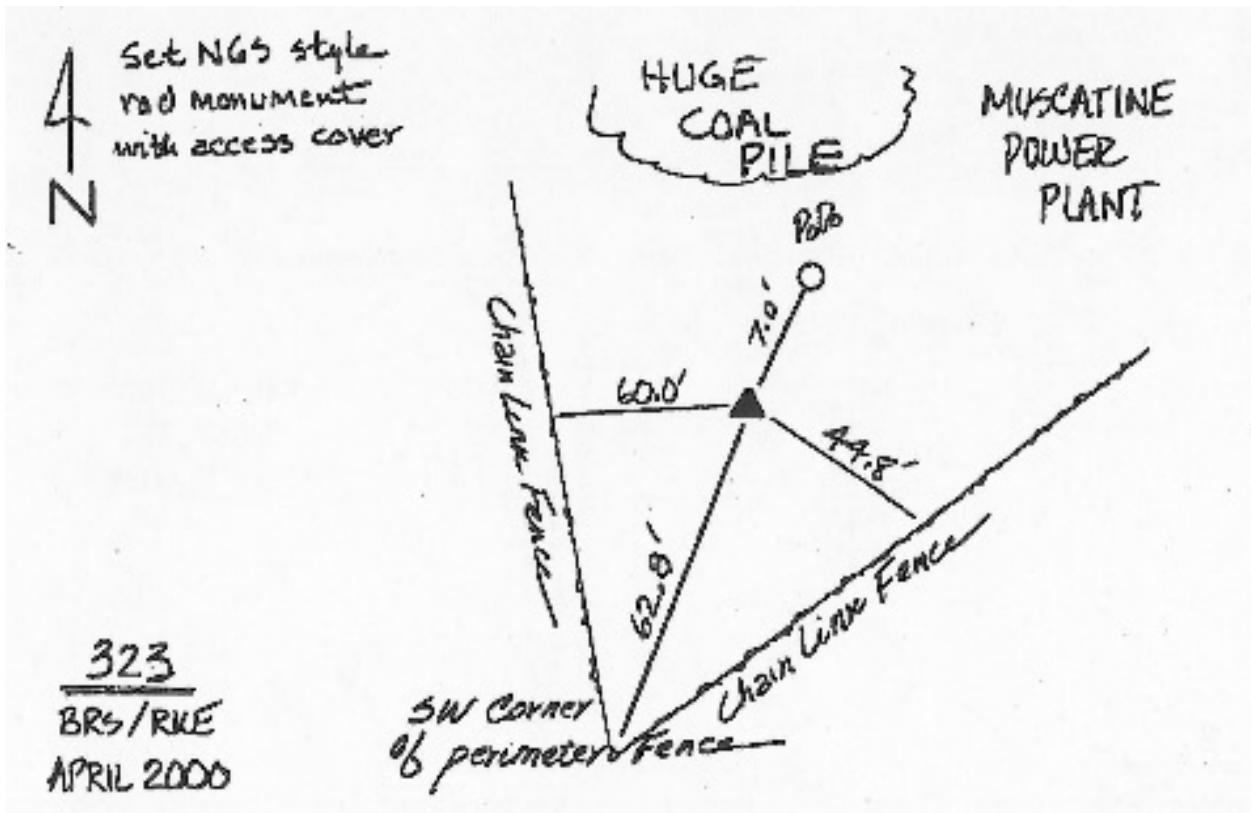 Set NGS style
rod monument
with access cover
N
HUGE
COAL
PILE
MUSCATINE
POWER
PLANT
7.0'
Chain Link Fence
60.0'
44.8'
62.8'
Chain Link Fence
SW Corner
of perimeter Fence
323
BRS/RKE
APRIL 2000